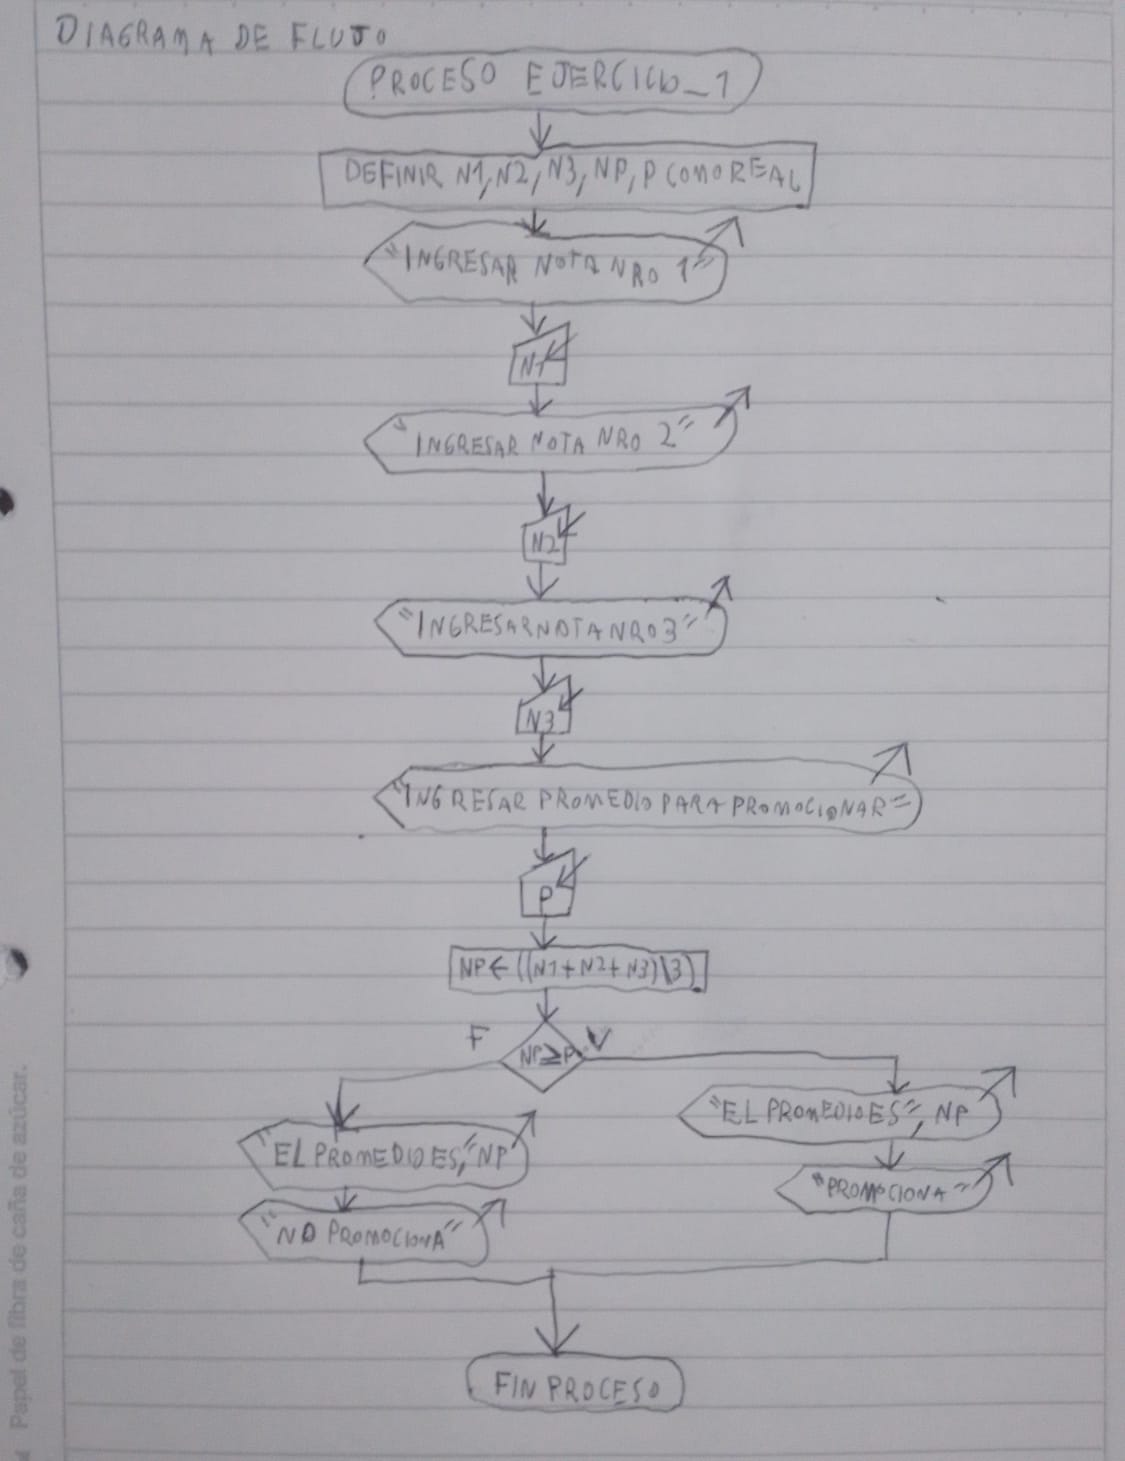 DIAGRAMA DE FLUJO
PROCESO EJERCICIO_1
DEFINIR N1, N2, N3, NP, P COMO REAL
"INGRESAR NOTA NRO 1"
N1
"INGRESAR NOTA NRO 2"
N2
"INGRESAR NOTA NRO 3"
N3
"INGRESAR PROMEDIO PARA PROMOCIONAR"
P
NP ← ((N1+N2+N3)\3)
F
NP≥P
V
"EL PROMEDIO ES", NP
"EL PROMEDIO ES," NP
"PROMOCIONA"
"NO PROMOCIONA"
FIN PROCESO
Papel de fibra de caña de azúcar.